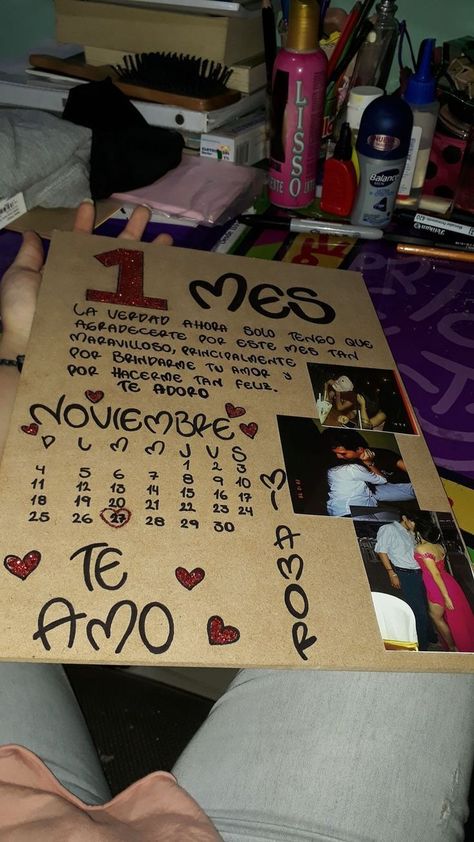 LISSO
Balance
1 MES
LA VERDAD AHORA SOLO TENGO QUE
AGRADECERTE POR ESTE MES TAN
MARAVILLOSO, PRINCIPALMENTE
POR BRINDARME TU AMOR Y
POR HACERME TAN FELIZ.
TE ADORO
NOVIEMBRE
D L M M J V S
1 2 3
4 5 6 7 8 9 10
11 12 13 14 15 16 17
18 19 20 21 22 23 24
25 26 27 28 29 30
TE
AMO